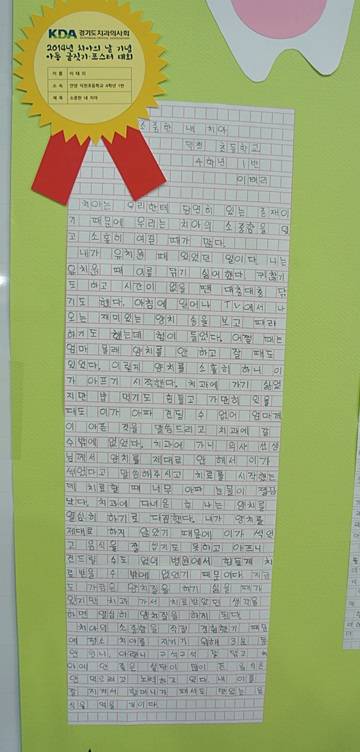 KDA 경기도치과의사회
2014년 치아의 날 기념
아동 글짓기·포스터 대회
이 름
소 속 안양 덕현초등학교 4학년 1반
제 목 소중한 내 치아
소중한 내 치아
덕현 초등학교
4학년 1반
치아는 우리한테 당연히 있는 존재이
기 때문에 우리는 치아의 소중함을 잊
고 소홀히 여길 때가 많다.
내가 유치원 때 있었던 일이다. 나는
유치원 때 이를 닦기 싫어했다. 귀찮기
도 하고 시간이 없을 땐 대충대충 닦
기도 했다. 아침에 일어나 TV에서 나
오는 재미있는 양치 송을 보고 따라
하기도 했는데 힘이 들었다. 어쩔 때는
엄마 몰래 양치를 안 하고 잘 때도
있었다. 이렇게 양치를 소홀히 하니 이
가 아프기 시작했다. 치과에 가기 싫었
지만 밥 먹기도 힘들고 가만히 있을
때도 이가 아파 견딜 수 없어 엄마께
이 아픈 것을 말씀드리고 치과에 갈
수밖에 없었다. 치과에 가니 의사 선생
님께서 양치를 제대로 안 해서 이가
썩었다고 말씀해주시고 치료를 시작했는
데 치료할 때 너무 아파 눈물이 절로
났다. 치과에 다녀온 후 나는 양치를
열심히 하기로 다짐했다. 내가 양치를
제대로 하지 않았기 때문에 이가 썩었
고 음식을 잘 씹지도 못하고 아프니
건드릴 수도 없어 병원에서 힘들게 치
료받을 수 밖에 없었기 때문이다. 지금
도 가끔은 양치질을 하기 싫을 때가
있지만 치과 가서 치료받았던 생각을
하면 열심히 양치질을 하게 된다.
치아의 소중함을 직접 경험했기 때문
에 평소 치아를 지키기 위해
구석구석 잘 닦고
아에 안 좋은 설탕이 많이 든 음식은
안 먹으려고 노력하고 있다. 내 이를
잘 지켜서 할머니가 돼서도 맛있는 음
식을 먹을 것이다.